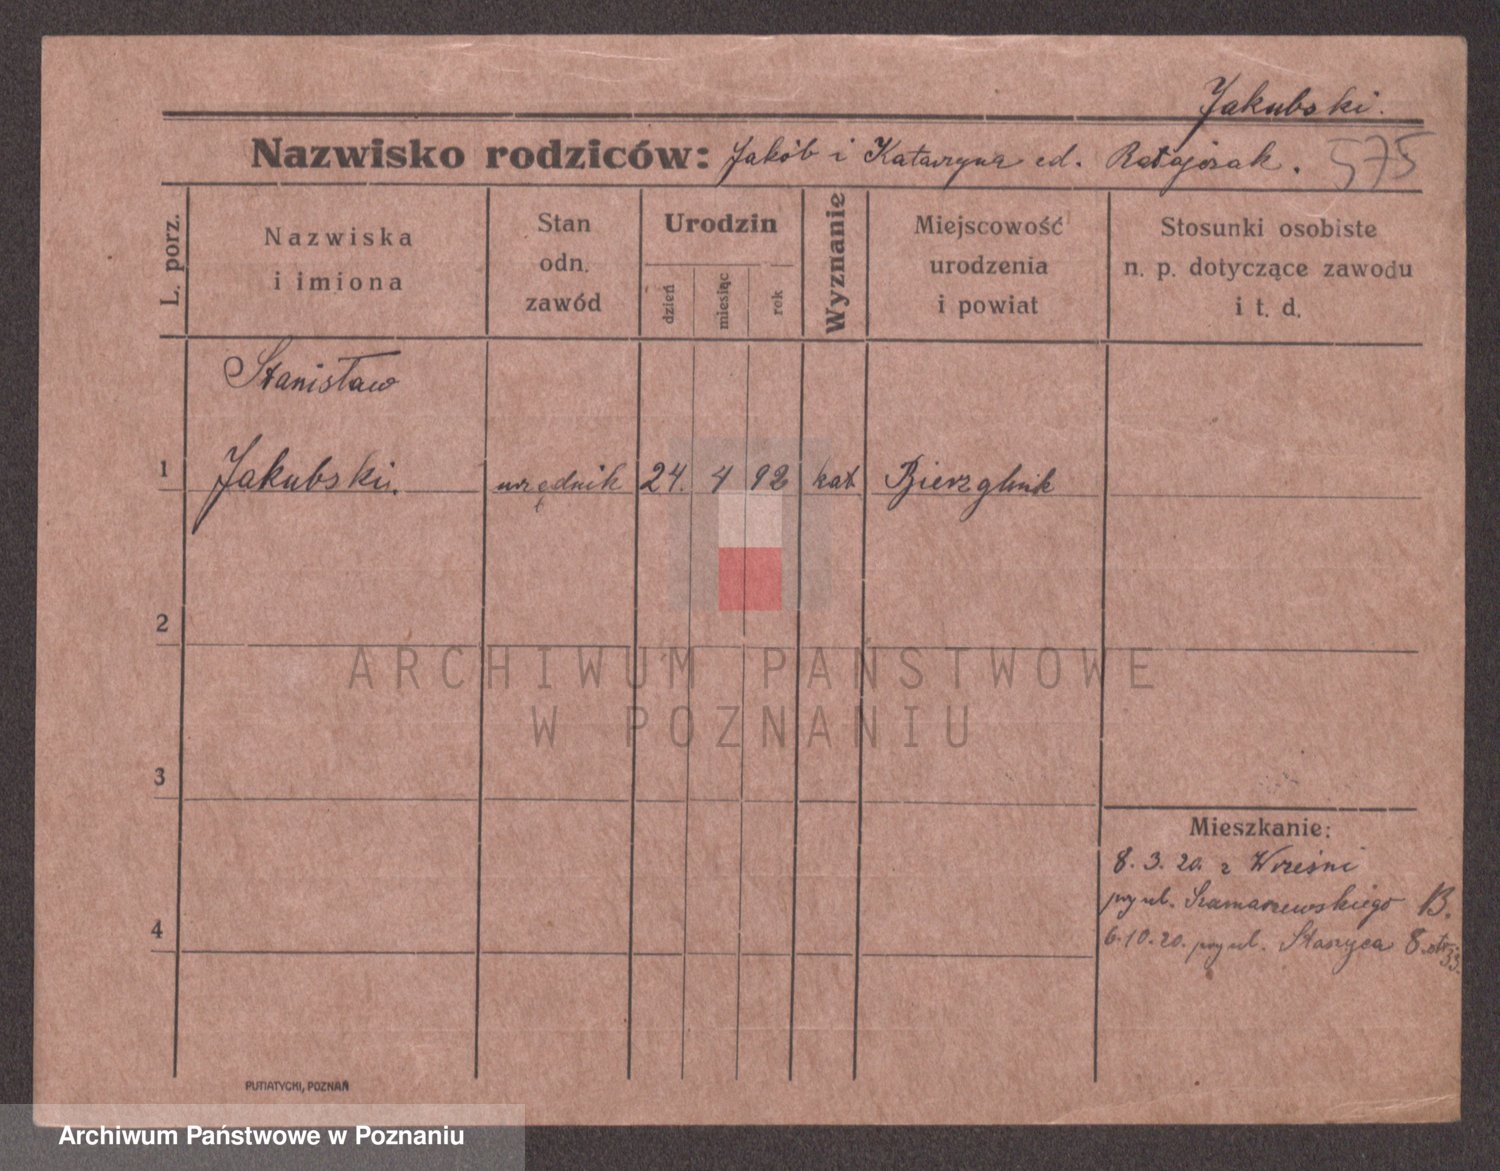 Jakubski.
Nazwisko rodziców: Jakób i Katarzyna cd. Ratajczak. 575
L. porz.
Nazwiska
i imiona
Stan
odn.
zawód
Urodzin
dzień
miesiąc
rok
Wyznanie
Miejscowość
urodzenia
i powiat
Stosunki osobiste
n. p. dotyczące zawodu
i t. d.
Stanisław
1 Jakubski. urzędnik 24. 4 92 kat Bierzglinek
2
ARCHIWUM PAŃSTWOWE
W POZNANIU
3
Mieszkanie:
8. 3. 20. z Wrześni
przy ul. Szamarzewskiego
4
6.10.20. przy ul. Staszyca 8.
PUTIATYCKI, POZNAŃ
Archiwum Państwowe w Poznaniu